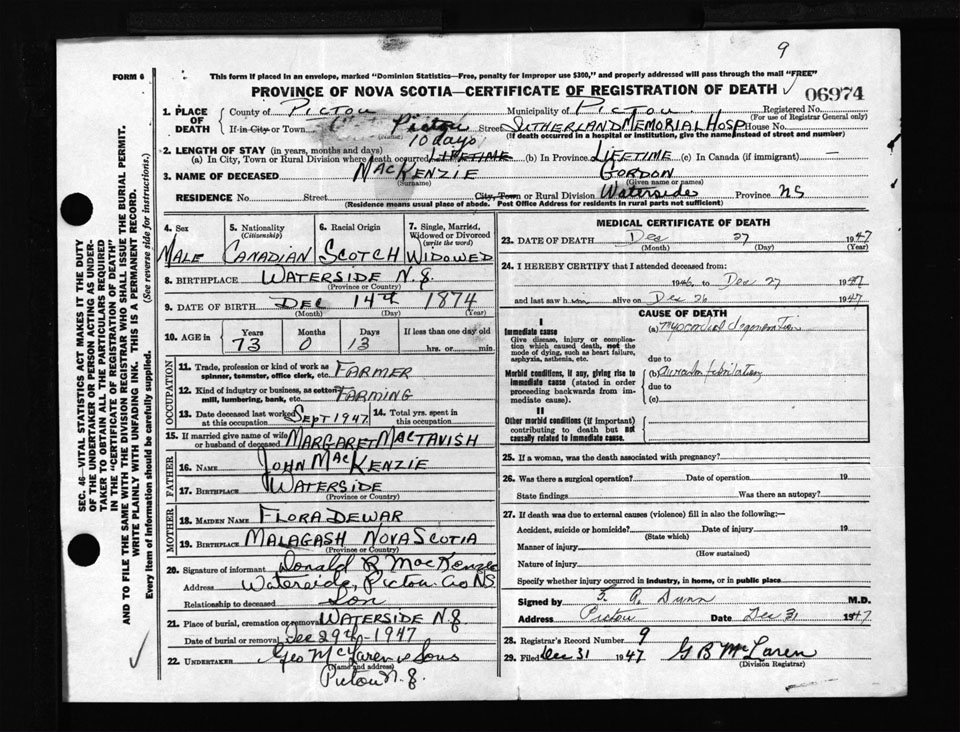 9
FORM 6
This form if placed in an envelope, marked "Dominion Statistics—Free, penalty for improper use $300," and properly addressed will pass through the mail "FREE"
PROVINCE OF NOVA SCOTIA—CERTIFICATE OF REGISTRATION OF DEATH
06974
1. PLACE OF DEATH
County of PICTOU Municipality of PICTOU Registered No.
(For use of Registrar General only)
If in City or Town Pictou Street SUTHERLAND MEMORIAL HOSP House No.
(Name) (If death occurred in a hospital or institution, give the name instead of street and number)
10 days
2. LENGTH OF STAY (in years, months and days)
(a) In City, Town or Rural Division where death occurred LIFETIME (b) In Province LIFETIME (c) In Canada (if immigrant) —
3. NAME OF DECEASED MACKENZIE GORDON
(Surname) (Given name or names)
RESIDENCE No. Street City, Town or Rural Division Waterside Province NS
(Residence means usual place of abode. Post Office Address for residents in rural parts not sufficient)
4. Sex MALE
5. Nationality (Citizenship) CANADIAN
6. Racial Origin SCOTCH
7. Single, Married, Widowed or Divorced (write the word) WIDOWED
8. BIRTHPLACE WATERSIDE N.S.
(Province or Country)
9. DATE OF BIRTH DEC 14th 1874
(Month) (Day) (Year)
10. AGE in Years Months Days If less than one day old
73 0 13 hrs. or min.
OCCUPATION
11. Trade, profession or kind of work as spinner, teamster, office clerk, etc. FARMER
12. Kind of industry or business, as cotton mill, lumbering, bank, etc. FARMING
13. Date deceased last worked at this occupation Sept 1947
14. Total yrs. spent in this occupation
15. If married give name of wife or husband of deceased MARGARET MACTAVISH
FATHER
16. NAME JOHN MACKENZIE
17. BIRTHPLACE WATERSIDE
(Province or Country)
MOTHER
18. MAIDEN NAME FLORA DEWAR
19. BIRTHPLACE MALAGASH NOVA SCOTIA
(Province or Country)
20. Signature of informant Donald R MacKenzie
Address Waterside, Pictou Co NS
Relationship to deceased Son
21. Place of burial, cremation or removal WATERSIDE N.S.
Date of burial or removal Dec 29th 1947
22. UNDERTAKER Geo McLaren & Sons
(Name and address)
Pictou N.S.
MEDICAL CERTIFICATE OF DEATH
23. DATE OF DEATH Dec 27 1947
(Month) (Day)
24. I HEREBY CERTIFY that I attended deceased from:
1946 to Dec 27 1947
and last saw him alive on Dec 26 1947
CAUSE OF DEATH
I
Immediate cause
Give disease, injury or complication which caused death, not the mode of dying, such as heart failure, asphyxia, asthenia, etc.
(a) myocardial degeneration
due to
Morbid conditions, if any, giving rise to immediate cause (stated in order proceeding backwards from immediate cause).
(b) Auricular fibrillation
due to
(c)
II
Other morbid conditions (if important) contributing to death but not causally related to immediate cause.
25. If a woman, was the death associated with pregnancy?
26. Was there a surgical operation? Date of operation 19
State findings Was there an autopsy?
27. If death was due to external causes (violence) fill in also the following:—
Accident, suicide or homicide? Date of injury 19
(State which)
Manner of injury
(How sustained)
Nature of injury
Specify whether injury occurred in industry, in home, or in public place
Signed by F. A. Dunn M.D.
Address Pictou Date Dec 31 1947
28. Registrar's Record Number 9
29. Filed Dec 31 1947 G B McLaren
(Division Registrar)
SEC. 46—VITAL STATISTICS ACT MAKES IT THE DUTY
OF THE UNDERTAKER OR PERSON ACTING AS UNDERTAKER TO OBTAIN ALL THE PARTICULARS REQUIRED
IN THE "CERTIFICATE OF REGISTRATION OF DEATH"
AND TO FILE THE SAME WITH THE DIVISION REGISTRAR WHO SHALL ISSUE THE BURIAL PERMIT.
WRITE PLAINLY WITH UNFADING INK. THIS IS A PERMANENT RECORD.
Every item of Information should be carefully supplied. (See reverse side for instructions.)